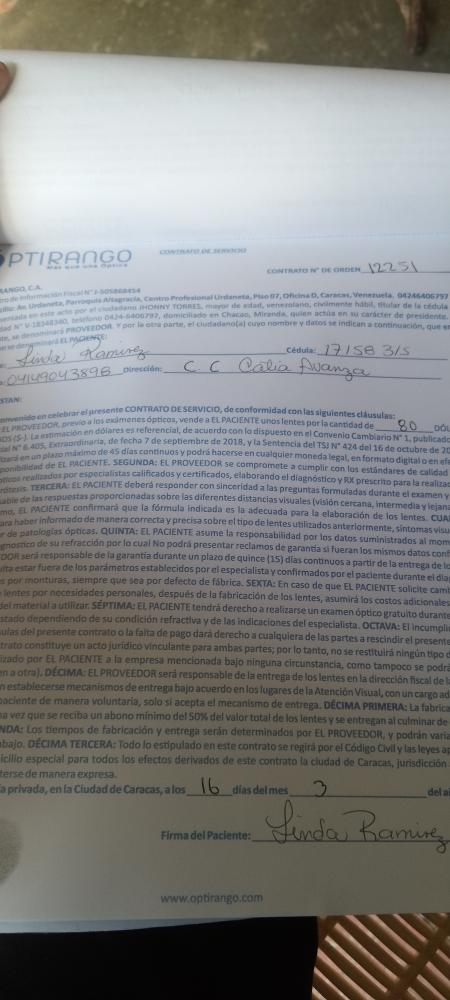 PTIRANGO
Más que una Óptica
CONTRATO DE SERVICIO
CONTRATO N° DE ORDEN 12251
RANGO, C.A.
ro de Información Fiscal N° J-505868454
Av. Urdaneta, Parroquia Altagracia, Centro Profesional Urdaneta, Piso 07, Oficina D, Caracas, Venezuela. 04246406797
en este acto por el ciudadano JHONNY TORRES, mayor de edad, venezolano, civilmente hábil, titular de la cédula
dad N° V-18348340, teléfono 0424-6406797, domiciliado en Chacao, Miranda, quien actúa en su carácter de presidente.
nte, se denominará PROVEEDOR. Y por la otra parte, el ciudadano(a) cuyo nombre y datos se indican a continuación, que en
se denominará EL PACIENTE:
Linda Ramirez Cédula: 17158315
04149043898 Dirección: C C Catia Avanza
STAN:
onvenido en celebrar el presente CONTRATO DE SERVICIO, de conformidad con las siguientes cláusulas:
EL PROVEEDOR, previo a los exámenes ópticos, vende a EL PACIENTE unos lentes por la cantidad de 80 DÓL
La estimación en dólares es referencial, de acuerdo con lo dispuesto en el Convenio Cambiario N° 1, publicado
ial N° 6.405, Extraordinaria, de fecha 7 de septiembre de 2018, y la Sentencia del TSJ N° 424 del 16 de octubre de 20
lizará en un plazo máximo de 45 días continuos y podrá hacerse en cualquier moneda legal, en formato digital o en efe
ponibilidad de EL PACIENTE. SEGUNDA: EL PROVEEDOR se compromete a cumplir con los estándares de calidad
pticos realizados por especialistas calificados y certificados, elaborando el diagnóstico y RX prescrito para la realizac
TERCERA: EL PACIENTE deberá responder con sinceridad a las preguntas formuladas durante el examen y
sable de las respuestas proporcionadas sobre las diferentes distancias visuales (visión cercana, intermedia y lejana
mo, EL PACIENTE confirmará que la fórmula indicada es la adecuada para la elaboración de los lentes. CUA
ara haber informado de manera correcta y precisa sobre el tipo de lentes utilizados anteriormente, síntomas visu
r de patologías ópticas. QUINTA: EL PACIENTE asume la responsabilidad por los datos suministrados al mom
agnostico de su refracción por lo cual No podrá presentar reclamos de garantía si fueran los mismos datos conf
DOR será responsable de la garantía durante un plazo de quince (15) días continuos a partir de la entrega de le
ulta estar fuera de los parámetros establecidos por el especialista y confirmados por el paciente durante el diag
s por monturas, siempre que sea por defecto de fábrica. SEXTA: En caso de que EL PACIENTE solicite camb
lentes por necesidades personales, después de la fabricación de los lentes, asumirá los costos adicionales
del material a utilizar. SÉPTIMA: EL PACIENTE tendrá derecho a realizarse un examen óptico gratuito durante
stado dependiendo de su condición refractiva y de las indicaciones del especialista. OCTAVA: El incumplir
ulas del presente contrato o la falta de pago dará derecho a cualquiera de las partes a rescindir el presente
trato constituye un acto jurídico vinculante para ambas partes; por lo tanto, no se restituirá ningún tipo d
lizado por EL PACIENTE a la empresa mencionada bajo ninguna circunstancia, como tampoco se podrá
en a otra). DÉCIMA: EL PROVEEDOR será responsable de la entrega de los lentes en la dirección fiscal de l
n establecerse mecanismos de entrega bajo acuerdo en los lugares de la Atención Visual, con un cargo ad
paciente de manera voluntaria, solo si acepta el mecanismo de entrega. DÉCIMA PRIMERA: La fabrica
na vez que se reciba un abono mínimo del 50% del valor total de los lentes y se entregan al culminar de
NDA: Los tiempos de fabricación y entrega serán determinados por EL PROVEEDOR, y podrán varia
abajo. DÉCIMA TERCERA: Todo lo estipulado en este contrato se regirá por el Código Civil y las leyes ap
icilio especial para todos los efectos derivados de este contrato la ciudad de Caracas, jurisdicción
terse de manera expresa.
a privada, en la Ciudad de Caracas, a los 16 días del mes 3 del añ
Firma del Paciente: Linda Ramirez
www.optirango.com